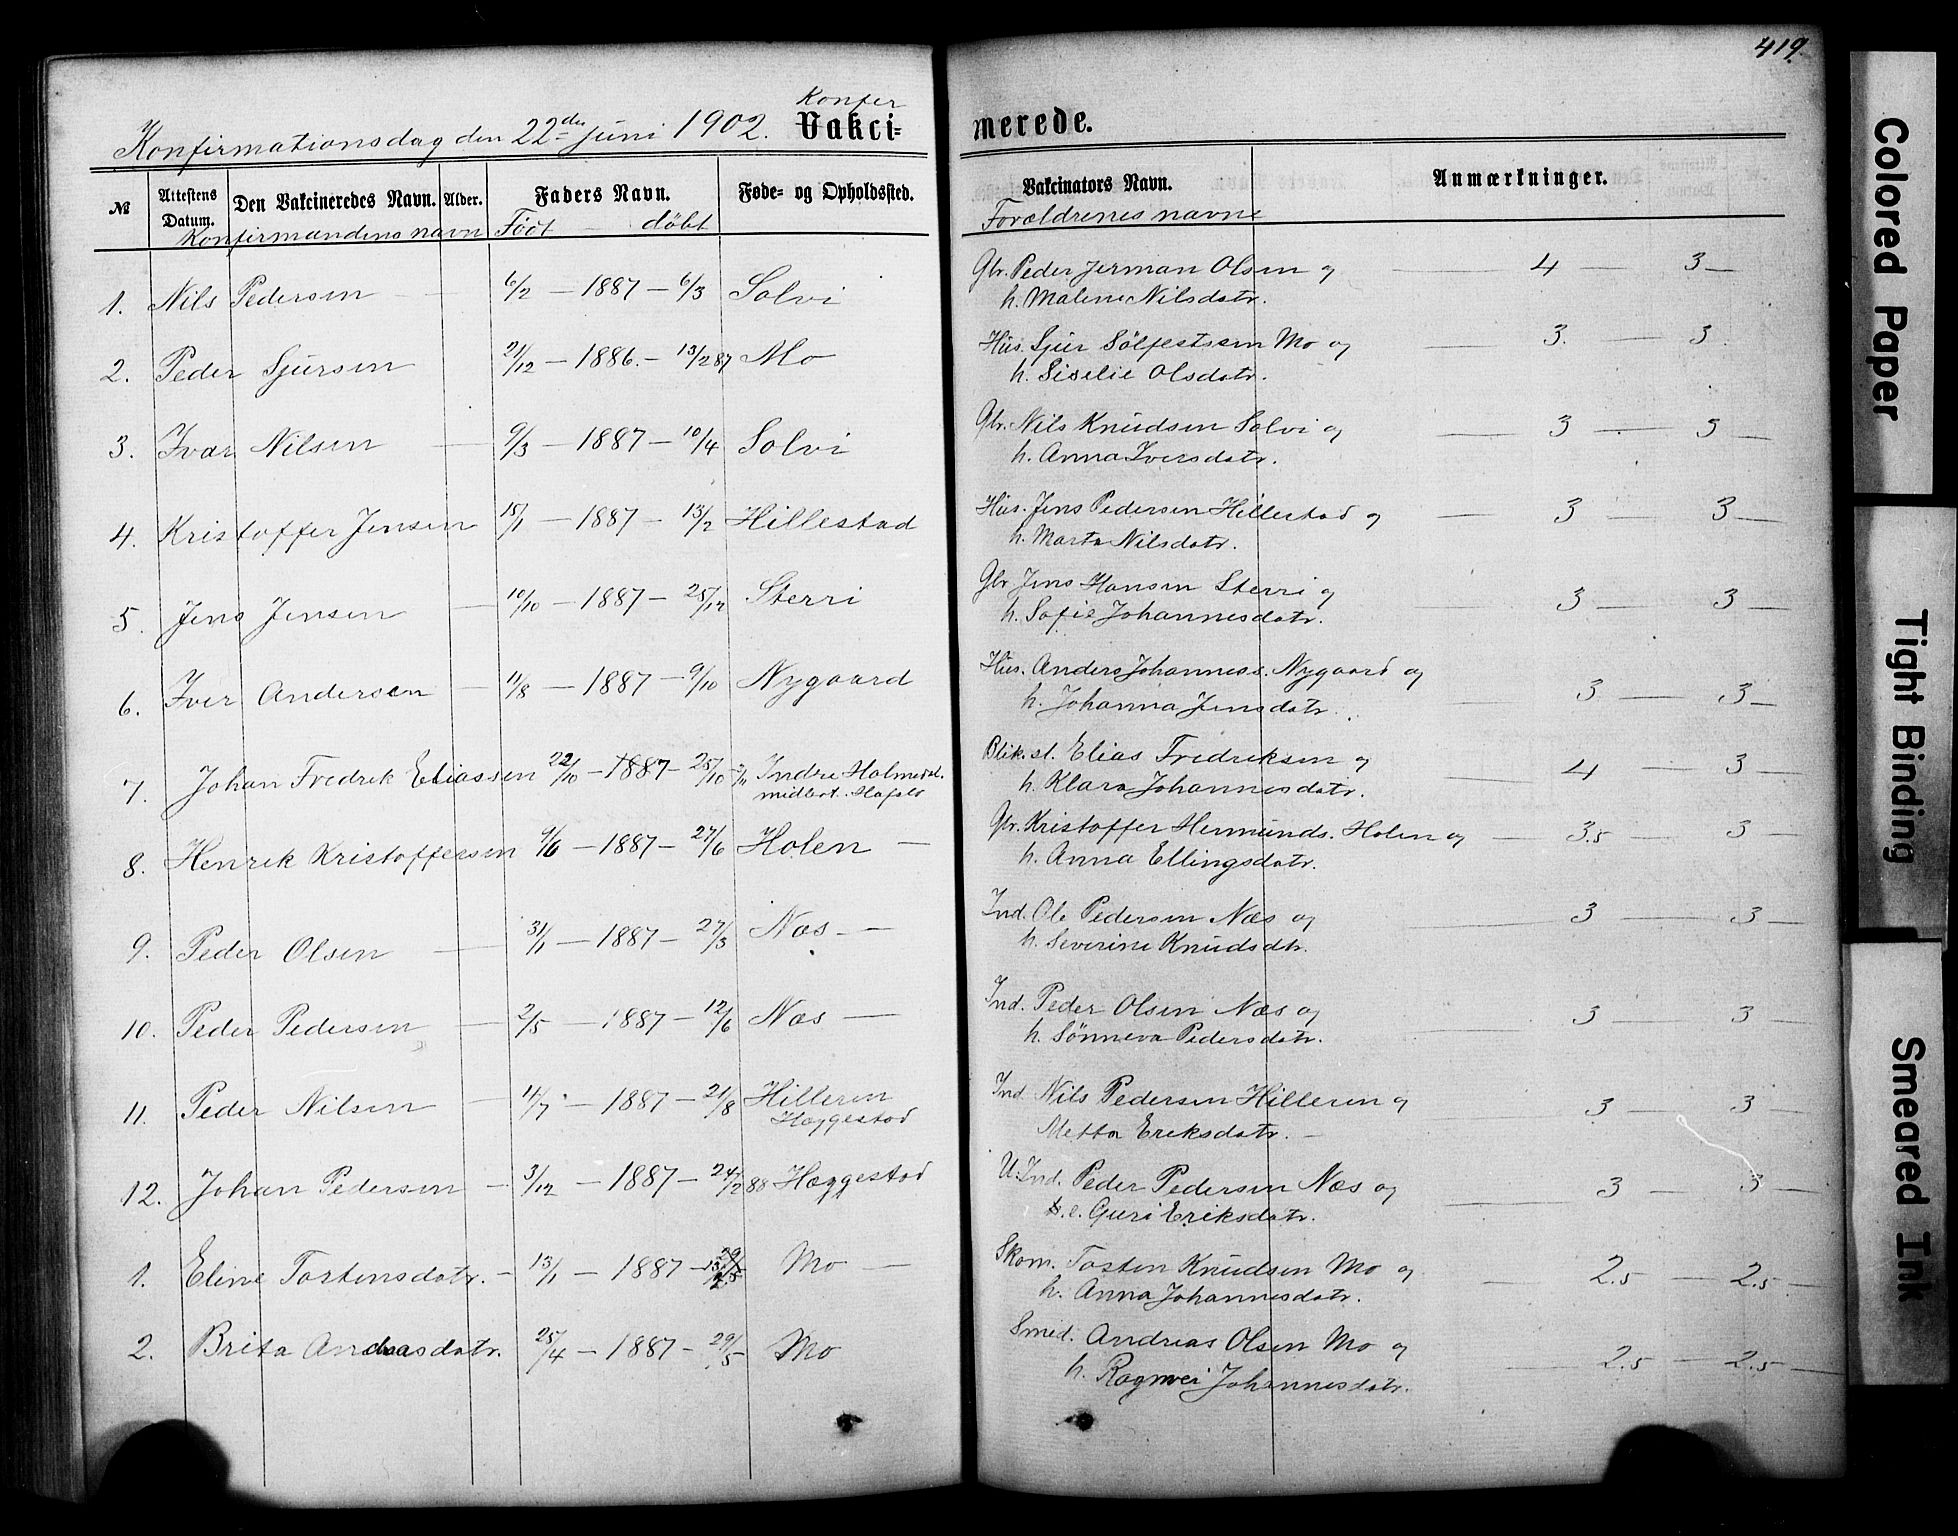 419.
Konfirmationsdag den 22de Juni 1902.
Konfer
Vakci- nerede.
№ Attestens Datum. Den Vakcineredes Navn. Alder. Faders Navn. Føde- og Opholdssted. Vakcinators Navn. Anmærkninger.
Konfirmandens navn Født — döbt Forældrenes navne
1. Nils Pedersen — 6/2 — 1887 — 6/3 Solvi Gbr. Peder Jerman Olsen og — 4 — 3 —
h. Malene Nilsdatr.
2. Peder Sjursen 21/12 — 1886. — 13/2 87 Mo Hus. Sjur Sölfestssen Mo og — 3. — 3.
h. Siselie Olsdatr.
3. Ivar Nilsen — 9/3 — 1887 — 10/4 Solvi Gbr. Nils Knudsen Solvi og — 3 — 3 —
h. Anna Iversdatr.
4. Kristoffer Jensen 15/1 — 1887 — 13/2 Hillestad Hus. Jens Pedersen Hillestad og — 3 — 3 —
h. Marta Nilsdatr.
5. Jens Jensen — 10/10 — 1887 — 25/12 Sterri Gbr Jens Hansen Sterri og 3 — 3 —
h. Sofie Johannesdatr.
6. Iver Andersen — 11/8 — 1887 — 9/10 Nygaard Hus. Anders Johanness. Nygaard og — 3 — 3 —
h. Johanna Jensdatr.
7. Johan Fredrek Eliassen 22/10 — 1887 — 25/10 Indre Holmedal. Blik.sl. Elias Fredriksen og — 4 — 3 —
midlert. Hafslo h. Klara Johannesdatr.
8. Henrek Kristoffersen 9/6 — 1887 — 27/6 Holen — Gbr. Kristoffer Hermunds. Holen og — 3.5 — 3 —
h. Anna Ellingsdatr.
9. Peder Olsen — 31/1 — 1887 — 27/3 Næs — Ind. Ole Pedersen Næs og 3 — 3 —
h. Severine Knudsdtr.
10. Peder Pedersen — 2/5 — 1887 — 12/6 Næs — Ind. Peder Olsen Næs og — 3 — 3 —
h. Sönneva Pedersdatr.
11. Peder Nilsen — 11/7 — 1887 — 21/8 Hilleren Ind. Nils Pedersen Hilleren og — 3 — 3 —
Hæggestad Metta Ereksdatr. —
12. Johan Pedersen — 3/12 — 1887 — 24/2 88 Hæggestad U. Ind. Peder Pedersen Næs og — 3 — 3 —
Guri Eriksdatr.
1. Eline Tostensdatr. — 13/1 — 1887 — Mo — Skom. Tosten Knudsen Mo og — 2.5 — 2.5 —
h. Anna Johannesdatr.
2. Brita Andreasdatr. 25/4 — 1887 — 29/5 Mo Smed. Andreas Olsen Mo og — 2.5 — 2.5 —
h. Ragnvei Johannesdatr.
Colored Paper
Tight Binding
Smeared Ink